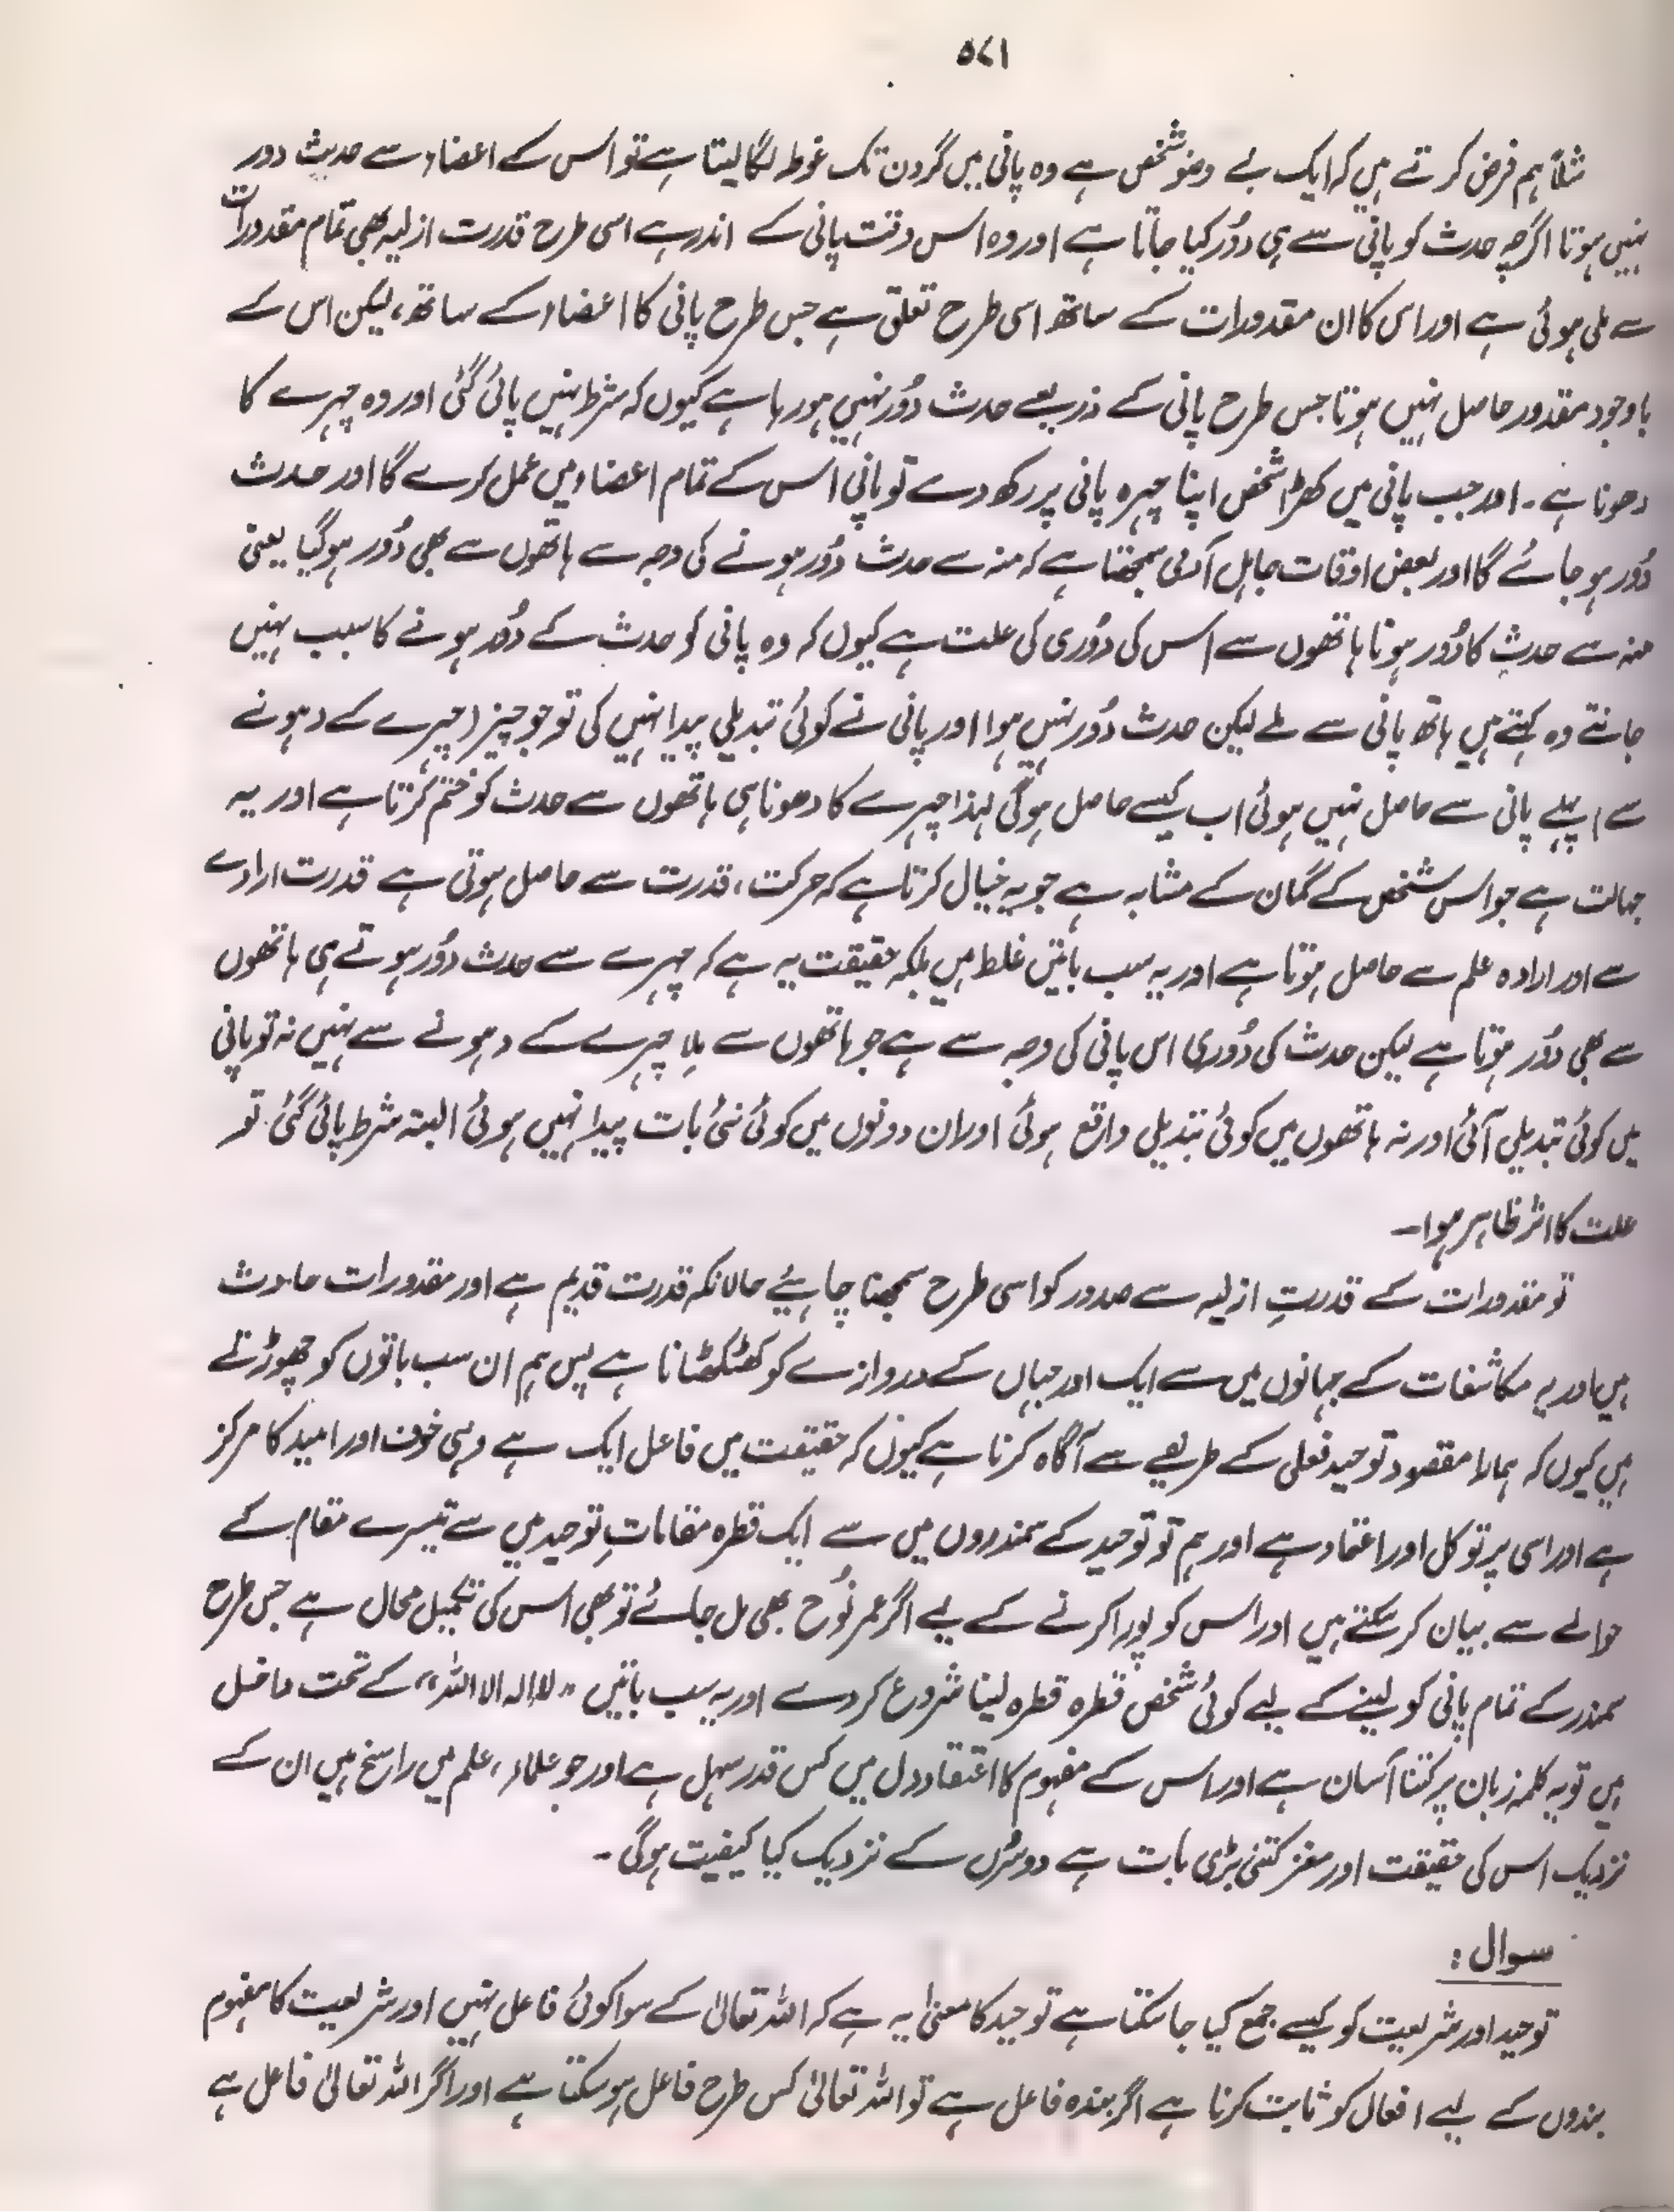 ۵۷۱
مثلاً ہم فرض کرتے ہیں کہ ایک بے وضو شخص ہے وہ پانی میں گردن تک غوطہ لگا لیتا ہے تو اس کے اعضاء سے حدیث دور
نہیں ہوتا اگرچہ حدث کو پانی سے ہی دُور کیا جاتا ہے اور وہ اس وقت پانی کے اندر ہے اسی طرح قدرت ازلیہ بھی تمام مقدورات
سے ملی ہوئی ہے اور اس کا ان مقدورات کے ساتھ اسی طرح تعلق ہے جس طرح پانی کا اعضاء کے ساتھ، لیکن اس کے
باوجود مقدور حاصل نہیں ہوتا جس طرح پانی کے ذریعے حدث دُور نہیں ہو رہا ہے کیوں کہ شرط نہیں پائی گئی اور وہ چہرے کا
دھونا ہے۔ اور جب پانی میں کھڑا شخص اپنا چہرہ پانی پر رکھ دے تو پانی اس کے تمام اعضاء میں عمل کرے گا اور حدث
دُور ہو جائے گا اور بعض اوقات جاہل آدمی سمجھتا ہے کہ منہ سے حدث دُور ہونے کی وجہ سے ہاتھوں سے بھی دُور ہو گیا یعنی
منہ سے حدث کا دُور ہونا ہاتھوں سے اس کی دُوری کی علت ہے کیوں کہ وہ پانی کو حدث کے دُور ہونے کا سبب نہیں
جانتے وہ کہتے ہیں ہاتھ پانی سے ملے لیکن حدث دُور نہیں ہوا اور پانی نے کوئی تبدیلی پیدا نہیں کی تو جو چیز (چہرے کے دہونے
سے) پہلے پانی سے حاصل نہیں ہوئی اب کیسے حاصل ہوگی لہذا چہرے کا دھونا ہی ہاتھوں سے حدث کو ختم کرتا ہے اور یہ
جہالت ہے جو اس شخص کے گمان کے مشابہ ہے جو یہ خیال کرتا ہے کہ حرکت، قدرت سے حاصل ہوتی ہے قدرت ارادے
سے اور ارادہ علم سے حاصل ہوتا ہے اور یہ سب باتیں غلط ہیں بلکہ حقیقت یہ ہے کہ چہرے سے حدث دُور ہوتے ہی ہاتھوں
سے بھی دُور ہوتا ہے لیکن حدث کی دُوری اس پانی کی وجہ سے ہے جو ہاتھوں سے مِلا چہرے کے دہونے سے نہیں نہ تو پانی
میں کوئی تبدیلی آئی اور نہ ہاتھوں میں کوئی تبدیلی واقع ہوئی اور ان دونوں میں کوئی نئی بات پیدا نہیں ہوئی البتہ شرط پائی گئی تو
علت کا اثر ظاہر ہوا۔
تو مقدورات کے قدرتِ ازلیہ سے صدور کو اسی طرح سمجھنا چاہیئے حالانکہ قدرت قدیم ہے اور مقدورات حادث
ہیں اور یہ مکاشفات کے جہانوں میں سے ایک اور جہاں کے دروازے کو کھٹکھٹانا ہے پس ہم ان سب باتوں کو چھوڑتے
ہیں کیوں کہ ہمارا مقصود توحید فعلی کے طریقے سے آگاہ کرنا ہے کیوں کہ حقیقت میں فاعل ایک ہے وہی خوف اور امید کا مرکز
ہے اور اسی پر توکل اور اعتماد ہے اور ہم تو توحید کے سمندروں میں سے ایک قطرہ مقاماتِ توحید میں سے تیسرے مقام کے
حوالے سے بیان کر سکتے ہیں اور اس کو پورا کرنے کے لیے اگر عمر نُوح بھی مل جائے تو بھی اس کی تکمیل محال ہے جس طرح
سمندر کے تمام پانی کو لینے کے لیے کوئی شخص قطرہ قطرہ لینا شروع کر دے اور یہ سب باتیں "لا الہ الا اللہ" کے تحت داخل
ہیں تو یہ کلمہ زبان پر کتنا آسان ہے اور اس کے مفہوم کا اعتقاد دل میں کس قدر سہل ہے اور جو علماء، علم میں راسخ ہیں ان کے
نزدیک اس کی حقیقت اور مغز کتنی بڑی بات ہے دوسروں کے نزدیک کیا کیفیت ہوگی۔
سوال:
توحید اور شریعت کو کیسے جمع کیا جا سکتا ہے توحید کا معنیٰ یہ ہے کہ اللہ تعالیٰ کے سوا کوئی فاعل نہیں اور شریعت کا مفہوم
بندوں کے لیے افعال کو ثابت کرنا ہے اگر بندہ فاعل ہے تو اللہ تعالیٰ کس طرح فاعل ہو سکتا ہے اور اگر اللہ تعالیٰ فاعل ہے